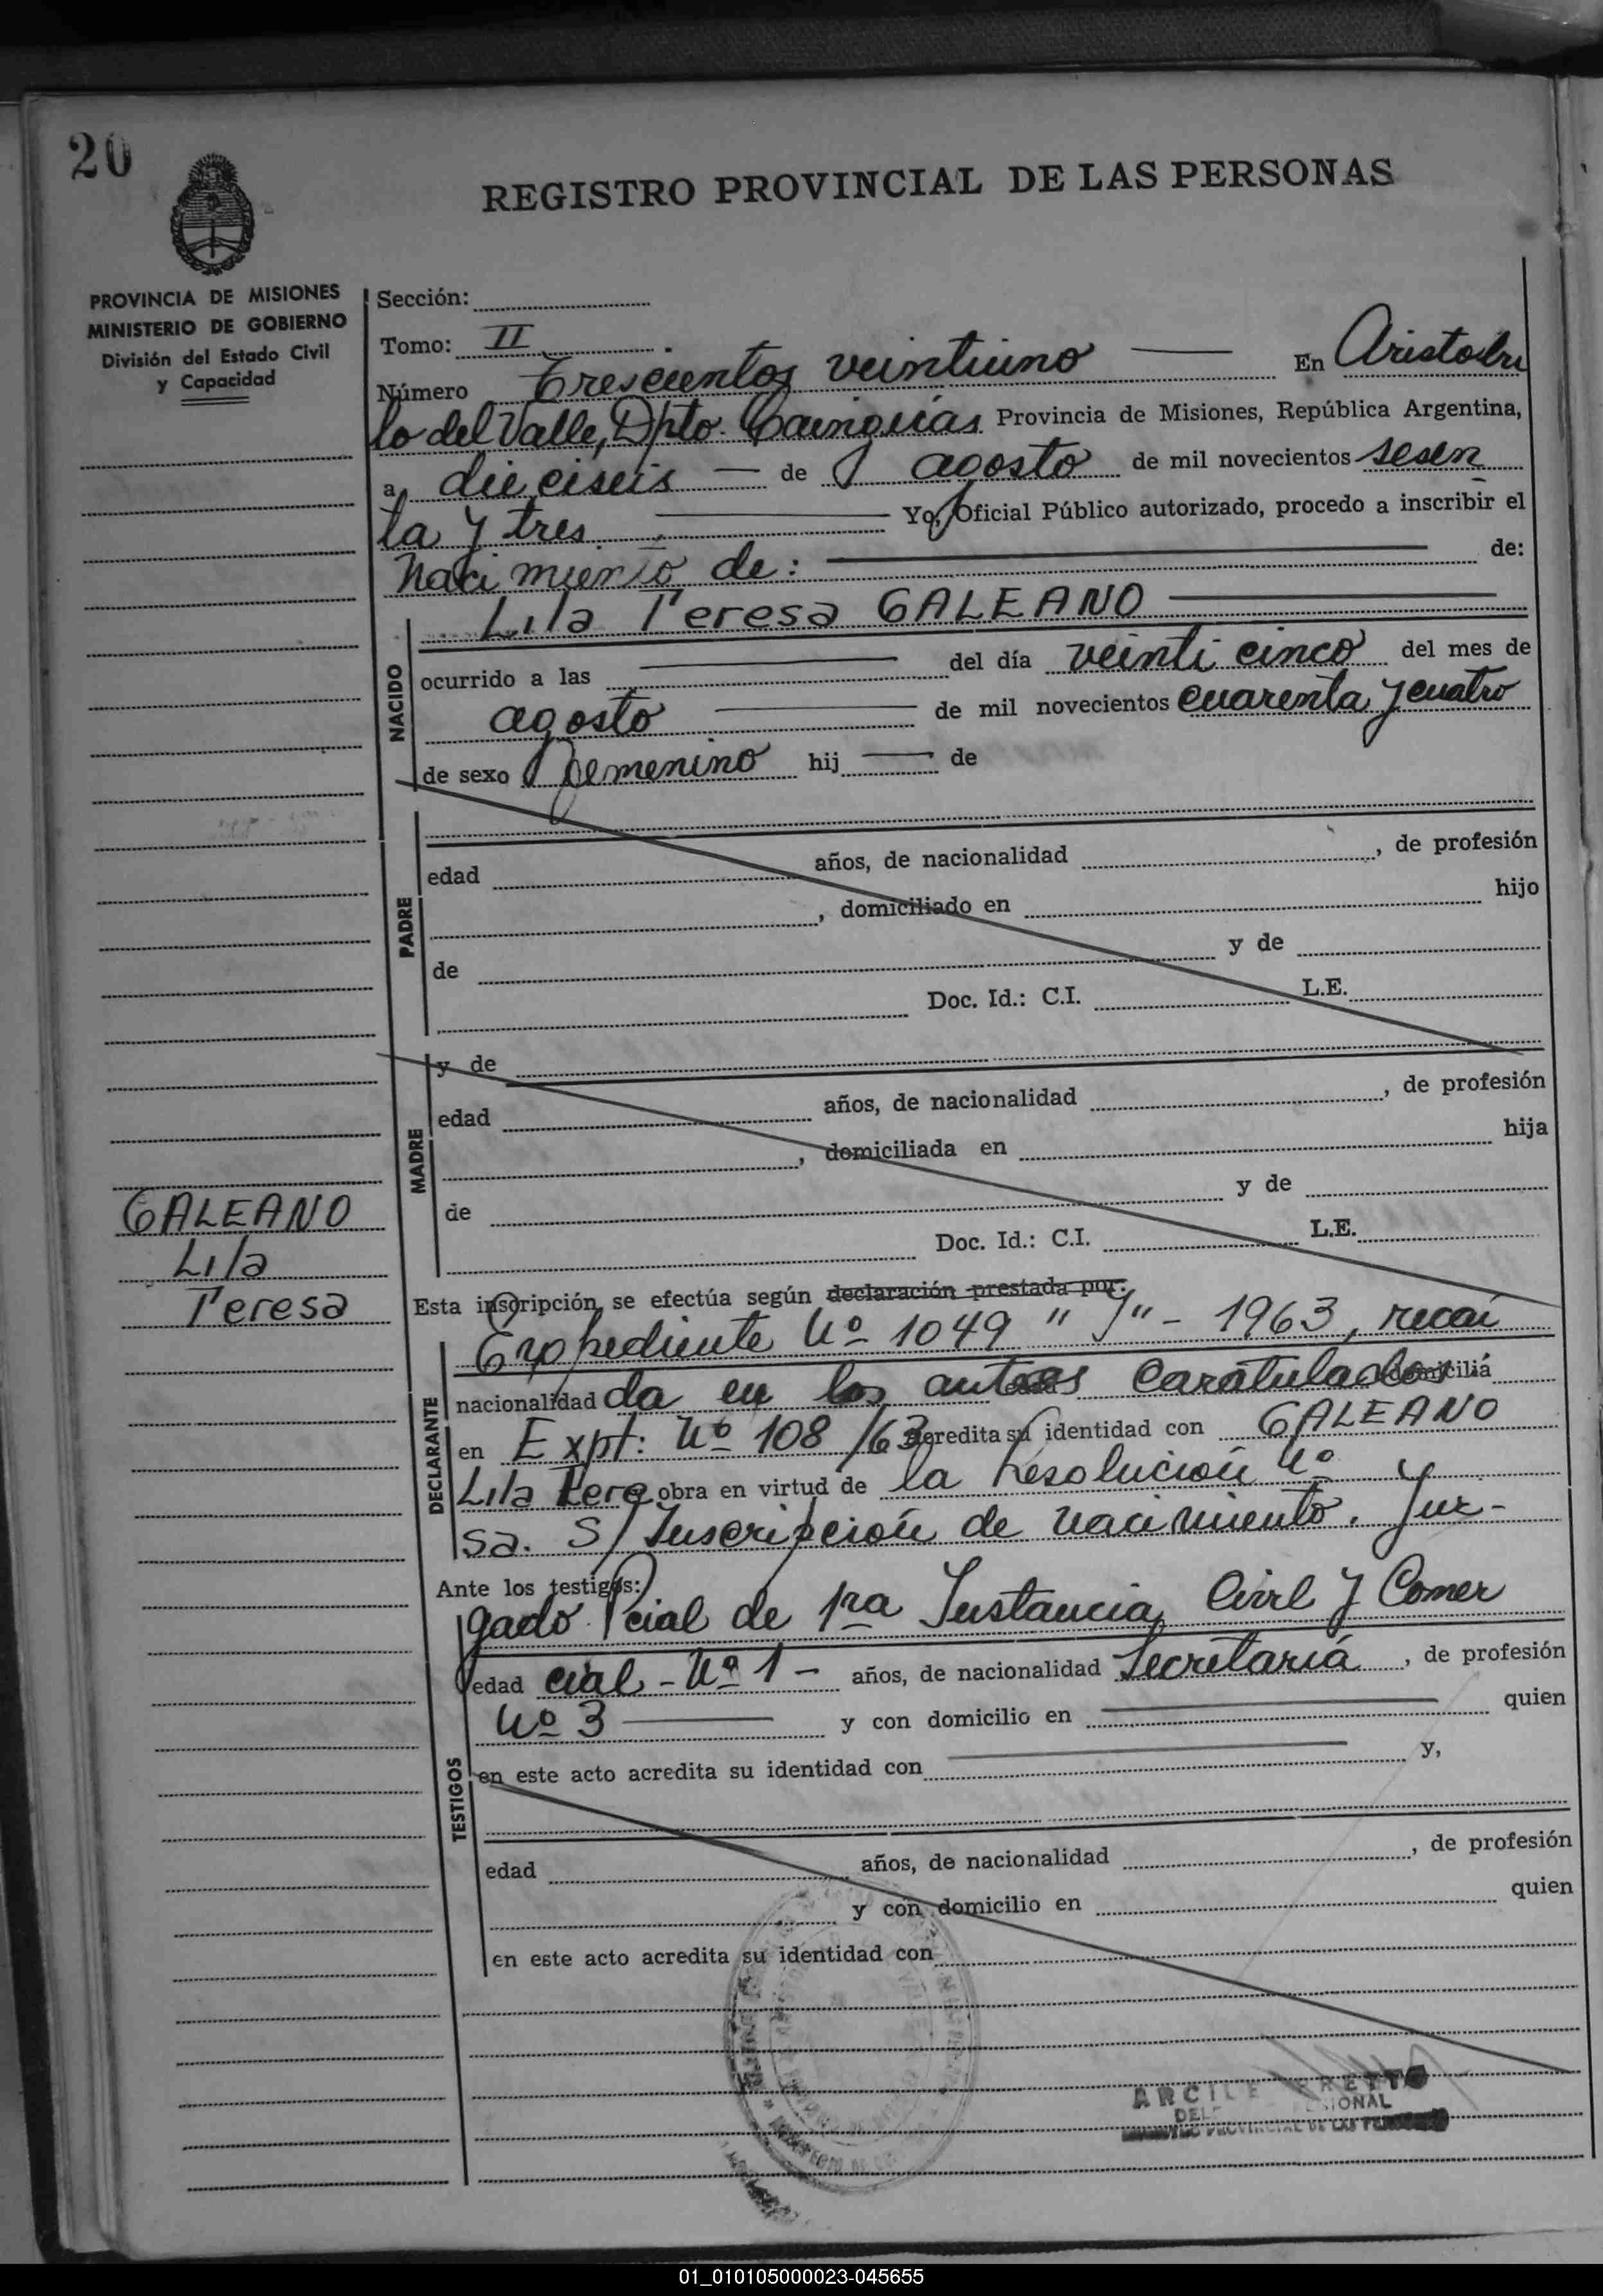 20
REGISTRO PROVINCIAL DE LAS PERSONAS
PROVINCIA DE MISIONES
MINISTERIO DE GOBIERNO
División del Estado Civil
y Capacidad
Sección:
Tomo: II
Número Trescientos veintiuno En Aristobu
lo del Valle, Dpto. Cainguás Provincia de Misiones, República Argentina,
a dieciseis de agosto de mil novecientos sesen
ta y tres. Yo, Oficial Público autorizado, procedo a inscribir el
nacimiento de: de:
Lila Teresa GALEANO
NACIDO
ocurrido a las del día veinti cinco del mes de
agosto de mil novecientos cuarenta y cuatro
de sexo femenino hij de
PADRE
edad años, de nacionalidad , de profesión
, domiciliado en hijo
de y de
Doc. Id.: C.I. L.E.
MADRE
y de
edad años, de nacionalidad , de profesión
, domiciliada en hija
de y de
Doc. Id.: C.I. L.E.
GALEANO
Lila
Teresa
Esta inscripción se efectúa según declaración prestada por:
Expediente Nº 1049 " J" - 1963, recaí
DECLARANTE
nacionalidad da en los autos caratulados domiciliá
en Expt: Nº 108/63 acredita su identidad con GALEANO
Lila Tere obra en virtud de la Resolución Nº
sa. S/ Inscripción de nacimiento. Juz-
Ante los testigos:
gado Pcial de 1ra Instancia Civil y Comer
TESTIGOS
edad cial - Nº 1 - años, de nacionalidad Secretaría , de profesión
Nº 3 y con domicilio en quien
en este acto acredita su identidad con y,
edad años, de nacionalidad , de profesión
y con domicilio en quien
en este acto acredita su identidad con
PROVINCIAL DE LAS
01_010105000023-045655